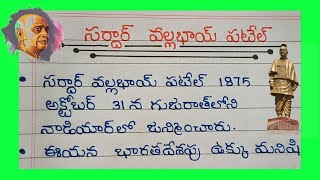 సర్దార్ వల్లభాయ్ పటేల్
• సర్దార్ వల్లభాయ్ పటేల్ 1875
అక్టోబర్ 31న గుజరాత్‌లోని
నాడియార్‌లో జన్మించారు.
• ఈయన భారతదేశపు ఉక్కు మనిషి